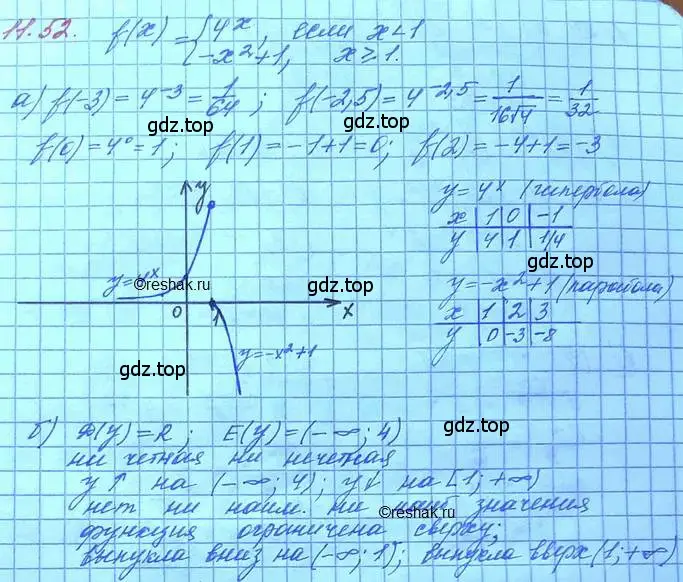 11.52. f(x) = { 4^x, если x<1
-x²+1, x≥1.
а) f(-3) = 4^-3 = 1/64; f(-2,5) = 4^-2,5 = 1/16√4 = 1/32
gdz.top
gdz.top
f(0) = 4⁰ = 1; f(1) = -1+1 = 0; f(2) = -4+1 = -3
y
y = 4^x (гипербола)
x | 1 | 0 | -1
y | 4 | 1 | 1/4
gdz.top
y = 4^x
©reshak.ru
gdz.top
0 1 x
y = -x²+1 (парабола)
x | 1 | 2 | 3
y | 0 | -3 | -8
y = -x²+1
gdz.top
gdz.top
б) D(y) = R; E(y) = (-∞; 4)
ни четная ни нечетная
y↑ на (-∞; 4); y↓ на [1; +∞)
нет ни наим. ни наиб значения
©reshak.ru
функция ограничена сверху;
выпукла вниз на (-∞; 1); выпукла вверх (1; +∞)